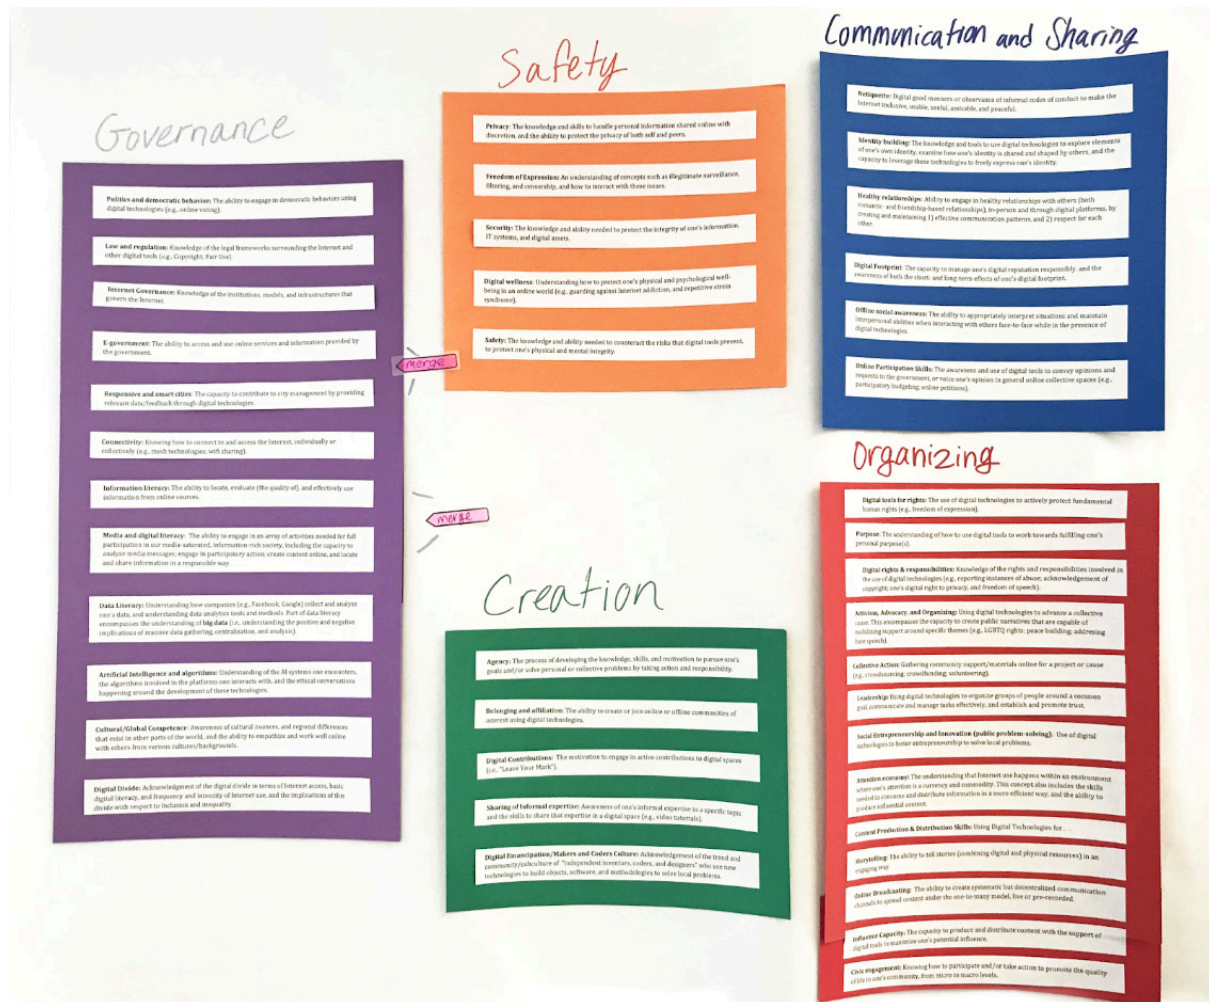 Governance
Politics and democratic behavior: The ability to engage in democratic behaviors using
digital technologies (e.g., online voting).
Law and regulation: Knowledge of the legal frameworks surrounding the Internet and
other digital tools (e.g., Copyright, Fair Use).
Internet Governance: Knowledge of the institutions, models, and infrastructures that
govern the Internet.
E-government: The ability to access and use online services and information provided by
the government.
Responsive and smart cities: The capacity to contribute to city management by providing
relevant data/feedback through digital technologies.
Connectivity: Knowing how to connect to and access the Internet, individually or
collectively (e.g., mesh technologies; wifi sharing).
Information literacy: The ability to locate, evaluate (the quality of), and effectively use
information from online sources.
Media and digital literacy: The ability to engage in an array of activities needed for full
participation in our media-saturated, information-rich society, including the capacity to
analyze media messages; engage in participatory action; create content online, and locate
and share information in a responsible way.
Data Literacy: Understanding how companies (e.g., Facebook, Google) collect and analyze
one's data, and understanding data analytics tools and methods. Part of data literacy
encompasses the understanding of big data (i.e., understanding the positive and negative
implications of massive data gathering, centralization, and analysis).
Artificial Intelligence and algorithms: Understanding of the AI systems one encounters,
the algorithms involved in the platforms one interacts with, and the ethical conversations
happening around the development of these technologies.
Cultural/Global Competence: Awareness of cultural nuances, and regional differences
that exist in other parts of the world, and the ability to empathize and work well online
with others from various cultures/backgrounds.
Digital Divide: Acknowledgment of the digital divide in terms of Internet access, basic
digital literacy, and frequency and intensity of Internet use, and the implications of this
divide with respect to inclusion and inequality.
Safety
Privacy: The knowledge and skills to handle personal information shared online with
discretion, and the ability to protect the privacy of both self and peers.
Freedom of Expression: An understanding of concepts such as illegitimate surveillance,
filtering, and censorship, and how to interact with these issues.
Security: The knowledge and ability needed to protect the integrity of one's information,
IT systems, and digital assets.
Digital wellness: Understanding how to protect one's physical and psychological well-
being in an online world (e.g., guarding against Internet addiction, and repetitive stress
syndrome).
Safety: The knowledge and ability needed to counteract the risks that digital tools present,
to protect one's physical and mental integrity.
merge
merge
Creation
Agency: The process of developing the knowledge, skills, and motivation to pursue one's
goals and/or solve personal or collective problems by taking action and responsibility.
Belonging and affiliation: The ability to create or join online or offline communities of
interest using digital technologies.
Digital Contributions: The motivation to engage in active contributions to digital spaces
(i.e., "Leave Your Mark").
Sharing of Informal expertise: Awareness of one's informal expertise in a specific topic
and the skills to share that expertise in a digital space (e.g., video tutorials).
Digital Emancipation/Makers and Coders Culture: Acknowledgement of the trend and
community/subculture of "independent inventors, coders, and designers" who use new
technologies to build objects, software, and methodologies to solve local problems.
Communication and Sharing
Netiquette: Digital good manners or observance of informal codes of conduct to make the
Internet inclusive, usable, useful, amicable, and peaceful.
Identity building: The knowledge and tools to use digital technologies to explore elements
of one's own identity, examine how one's identity is shared and shaped by others, and the
capacity to leverage these technologies to freely express one's identity.
Healthy relationships: Ability to engage in healthy relationships with others (both
romantic- and friendship-based relationships), in-person and through digital platforms, by
creating and maintaining 1) effective communication patterns, and 2) respect for each
other.
Digital Footprint: The capacity to manage one's digital reputation responsibly, and the
awareness of both the short- and long-term effects of one's digital footprint.
Offline social awareness: The ability to appropriately interpret situations and maintain
interpersonal abilities when interacting with others face-to-face while in the presence of
digital technologies.
Online Participation Skills: The awareness and use of digital tools to convey opinions and
requests to the government, or voice one's opinion in general online collective spaces (e.g.,
participatory budgeting, online petitions).
Organizing
Digital tools for rights: The use of digital technologies to actively protect fundamental
human rights (e.g., freedom of expression).
Purpose: The understanding of how to use digital tools to work towards fulfilling one's
personal purpose(s).
Digital rights & responsibilities: Knowledge of the rights and responsibilities involved in
the use of digital technologies (e.g., reporting instances of abuse; acknowledgement of
copyright; one's digital right to privacy, and freedom of speech).
Activism, Advocacy, and Organizing: Using digital technologies to advance a collective
cause. This encompasses the capacity to create public narratives that are capable of
mobilizing support around specific themes (e.g., LGBTQ rights; peace building; addressing
hate speech).
Collective Action: Gathering community support/materials online for a project or cause
(e.g., crowdsourcing; crowdfunding; volunteering).
Leadership: Using digital technologies to organize groups of people around a common
goal, communicate and manage tasks effectively, and establish and promote trust.
Social Entrepreneurship and Innovation (public problem-solving): Use of digital
technologies to foster entrepreneurship to solve local problems.
Attention economy: The understanding that Internet use happens within an environment
where one's attention is a currency and commodity. This concept also includes the skills
needed to consume and distribute information in a more efficient way, and the ability to
produce influential content.
Content Production & Distribution Skills: Using Digital Technologies for . . .
Storytelling: The ability to tell stories (combining digital and physical resources) in an
engaging way.
Online Broadcasting: The ability to create systematic but decentralized communication
channels to spread content under the one-to-many model, live or pre-recorded.
Influence Capacity: The capacity to produce and distribute content with the support of
digital tools to maximize one's potential influence.
Civic engagement: Knowing how to participate and/or take action to promote the quality
of life in one's community, from micro to macro levels.